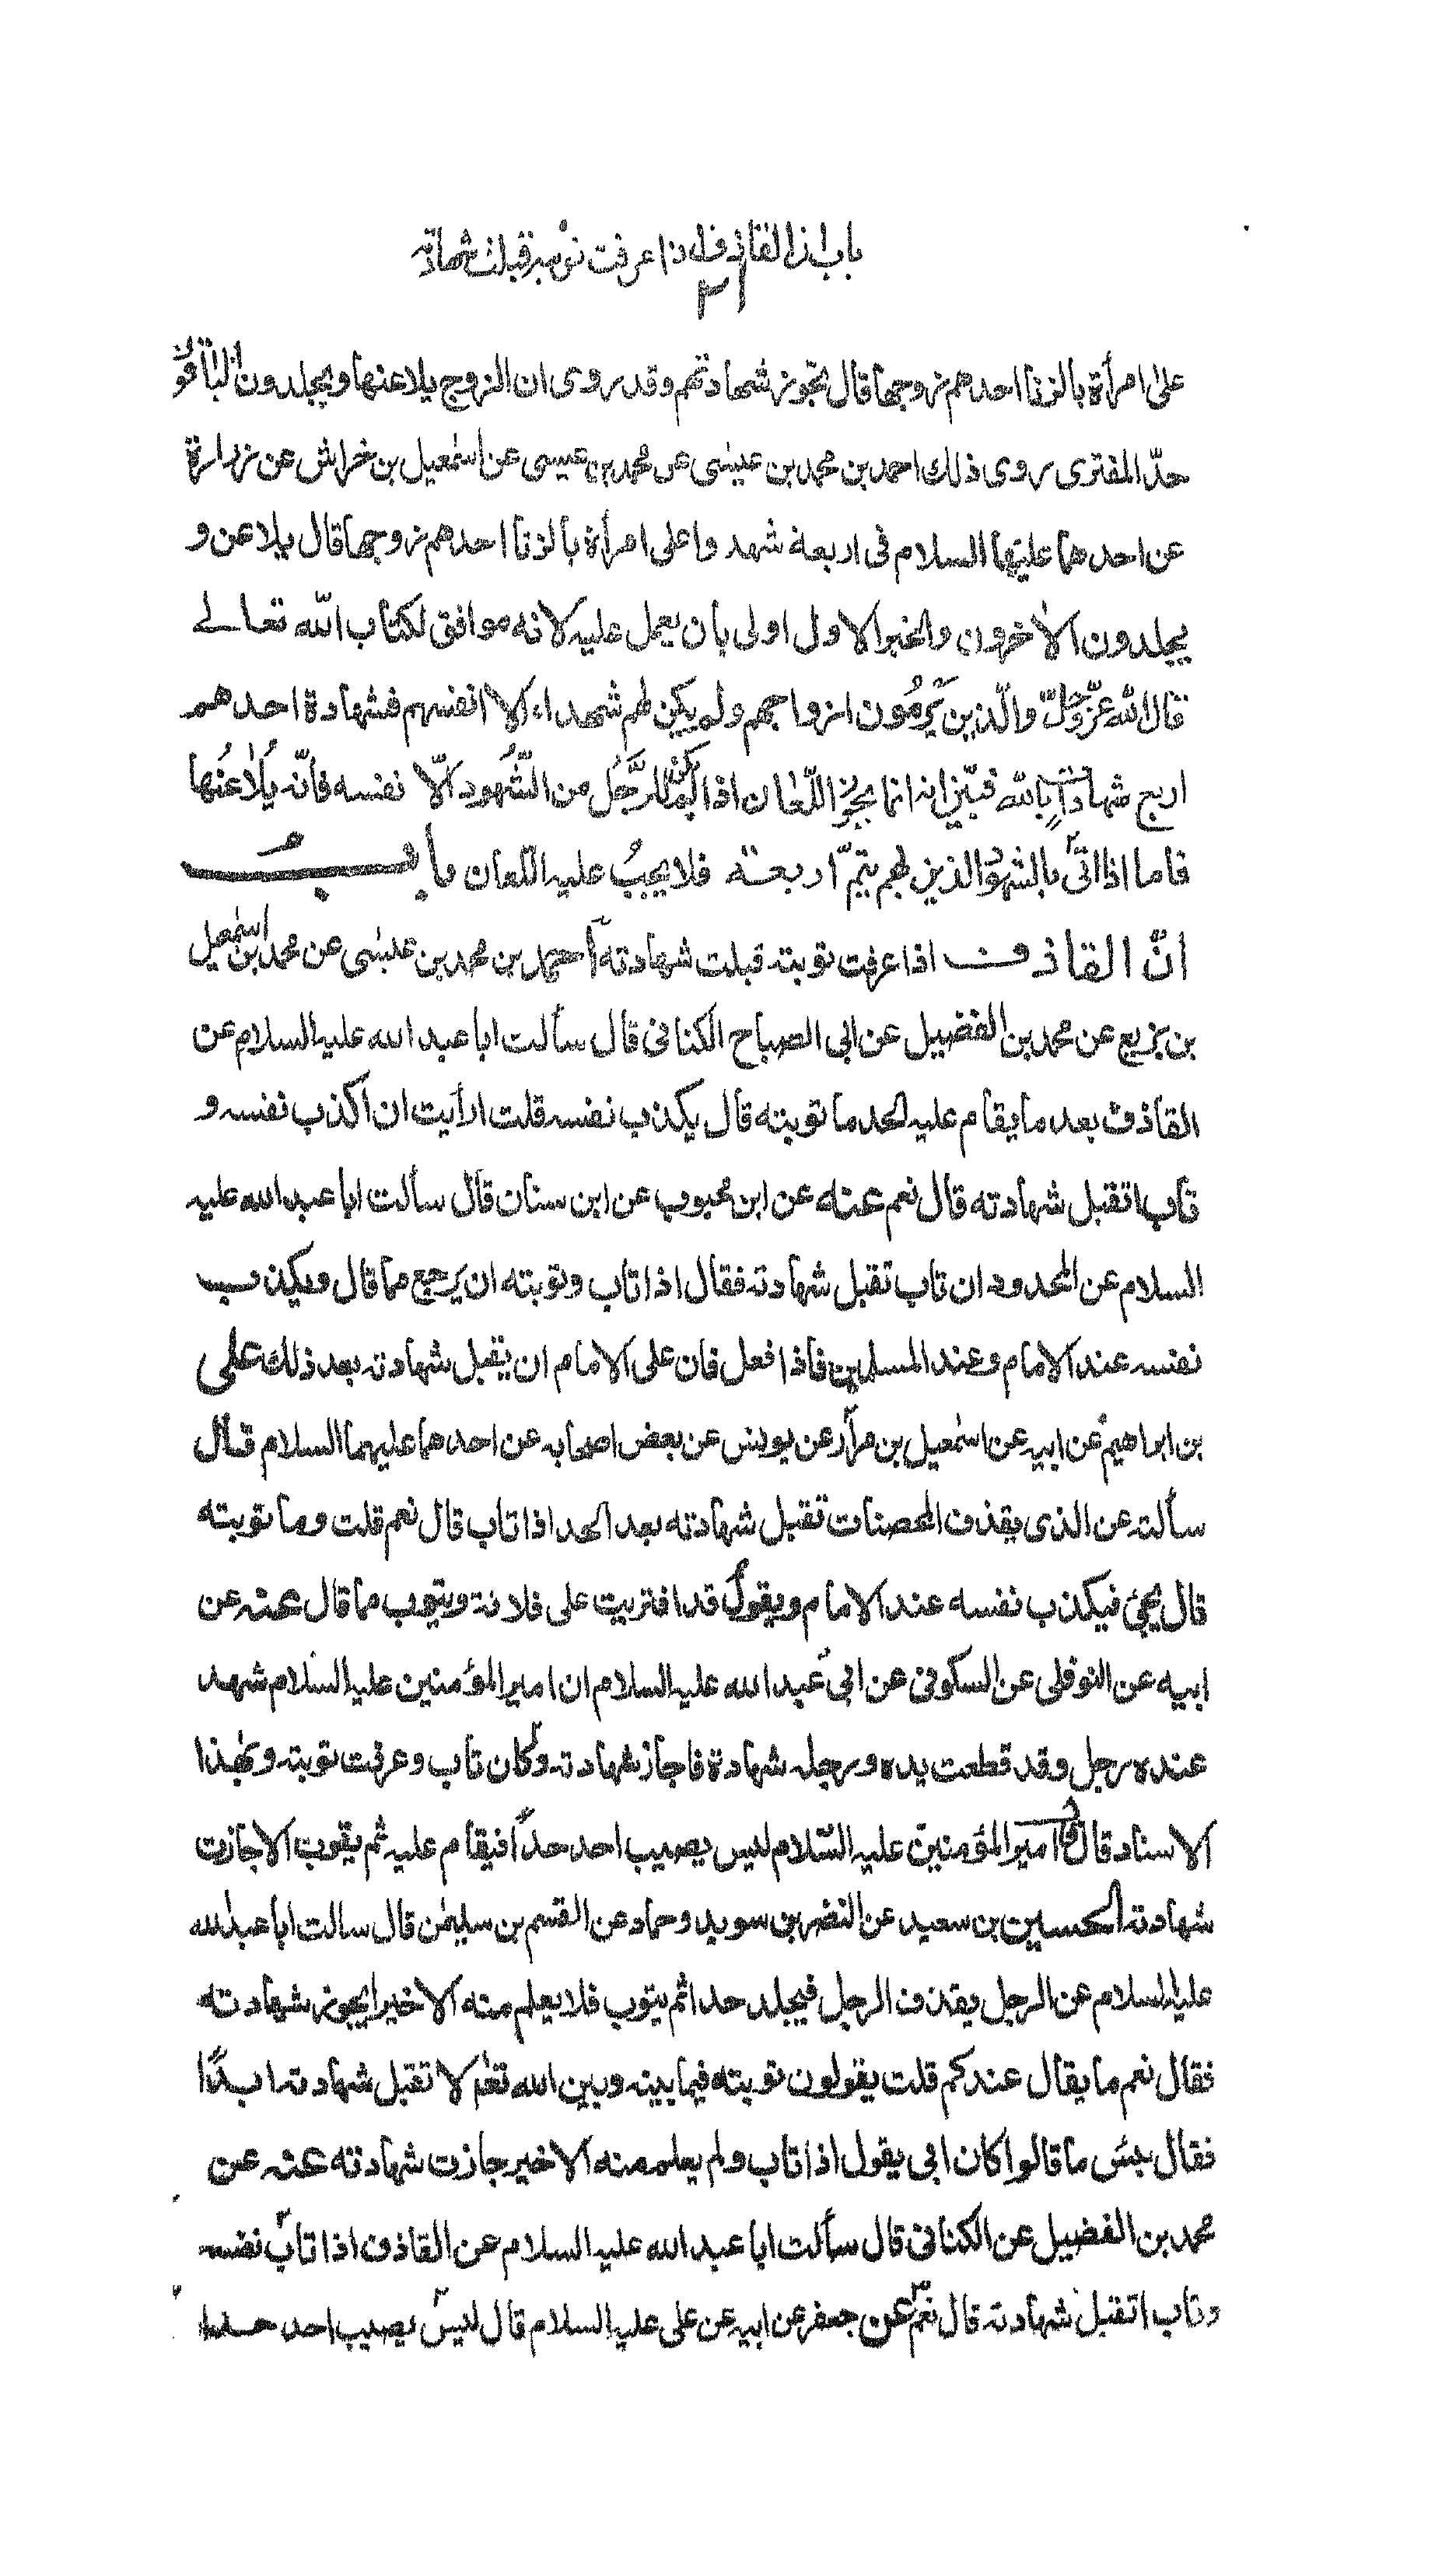 باب ان القاذف اذا عرفت توبته قبلت شهادته
٣١
على امرأة بالزنا احدهم زوجها قال تجوز شهادتهم وقد روى ان الزوج يلاعنها ويجلدون الباقون
حدّ المفترى روى ذلك احمد بن محمد بن عيسى عن محمد بن عيسى عن اسمعيل بن خراش عن زرارة
عن احدهما عليهما السلام فى اربعة شهدوا على امرأة بالزنا احدهم زوجها قال يلاعن و
يجلدون الاخرون والخبر الاول اولى بأن يعمل عليه لانه موافق لكتاب الله تعالے
قال الله عزّ وجلّ والّذين يَرمُون ازواجهم ولم يكن لهم شهداء الا انفسهم فشهادة احدهم
اربع شهاداتٍ بالله فبيّن انه انما يجوز اللّعان اذا لم يكن للرَّجُل من الشُّهود الّا نفسه فانّه يُلاعنُها
فاما اذا اتى بالشهود الذين لهم يتمّ اربعة فلا يجبُ عليه اللعان بأب
انّ القاذف اذا عرفت توبته قبلت شهادته احمد بن محمد بن عيسى عن محمد بن اسمعيل
بن بزيع عن محمد بن الفضيل عن ابى الصباح الكنانى قال سألت ابا عبد الله عليه السلام عن
القاذف بعد ما يقام عليه الحد ما توبته قال يكذب نفسه قلت ارأيت ان اكذب نفسه و
تاب اتقبل شهادته قال نعم عنه عن ابن محبوب عن ابن سنان قال سألت ابا عبد الله عليه
السلام عن المحدود ان تاب تقبل شهادته فقال اذا تاب وتوبته ان يَرجع مما قال ويكذب
نفسه عند الامام وعند المسلمين فأذا فعل فان على الامام ان يقبل شهادته بعد ذلك على
بن ابراهيم عن ابيه عن اسمعيل بن مرار عن يونس عن بعض اصحابه عن احدهما عليهما السلام قال
سألته عن الذى يقذف المحصنات تقبل شهادته بعد الحد اذا تاب قال نعم قلت وما توبته
قال يجئ فيكذب نفسه عند الامام ويقول قد افتريت على فلانة ويتوب مما قال عنه عن
ابيه عن النوفلى عن السكونى عن ابى عبد الله عليه السلام ان امير المؤمنين عليه السلام شهد
عنده رجل وقد قطعت يده ورجله شهادة فاجاز شهادته وكان تاب وعرفت توبته وبهذا
الاسناد قال قال امير المؤمنين عليه السّلام ليس يصيب احد حداً فيقام عليه ثم يتوب الا جازت
شهادته الحسين بن سعيد عن النضر بن سويد وحماد عن القسم بن سليمن قال سالت ابا عبد الله
عليه السلام عن الرجل يقذف الرجل فيجلد حدا ثم يتوب فلا يعلم منه الا خيرا يجوز شهادته
فقال نعم ما يقال عندكم قلت يقولون توبته فيما بينه وبين الله تعم لا تقبل شهادته ابداً
فقال بئس ما قالوا كان ابى يقول اذا تاب ولم يعلم منه الا خير جازت شهادته عنه عن
محمد بن الفضيل عن الكنانى قال سألت ابا عبد الله عليه السلام عن القاذف اذا تاب نفسه
وتاب اتقبل شهادته قال نعم عن جعفر عن ابيه عن على عليه السلام قال ليس يصيب احد حدا